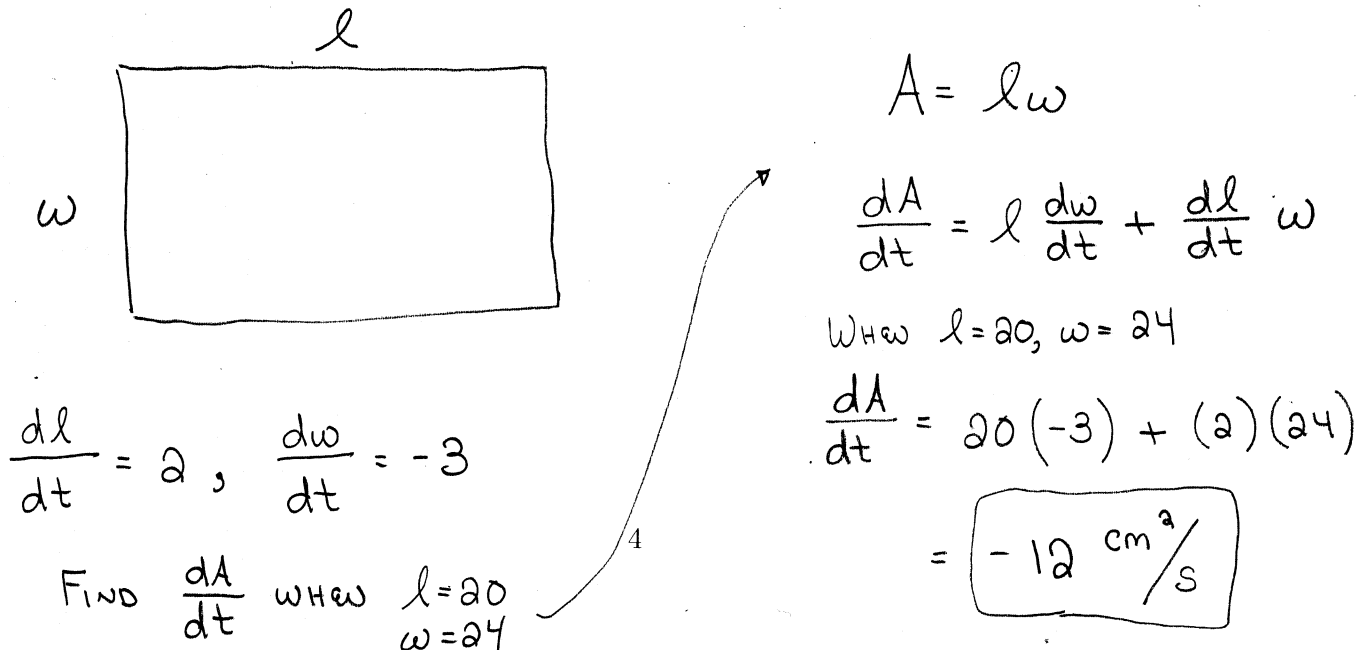 l
w
dl/dt = 2, dw/dt = -3
FIND dA/dt WHEN l=20
w=24
4
A= lw
dA/dt = l dw/dt + dl/dt w
WHEN l=20, w= 24
dA/dt = 20(-3) + (2)(24)
= -12 cm²/s